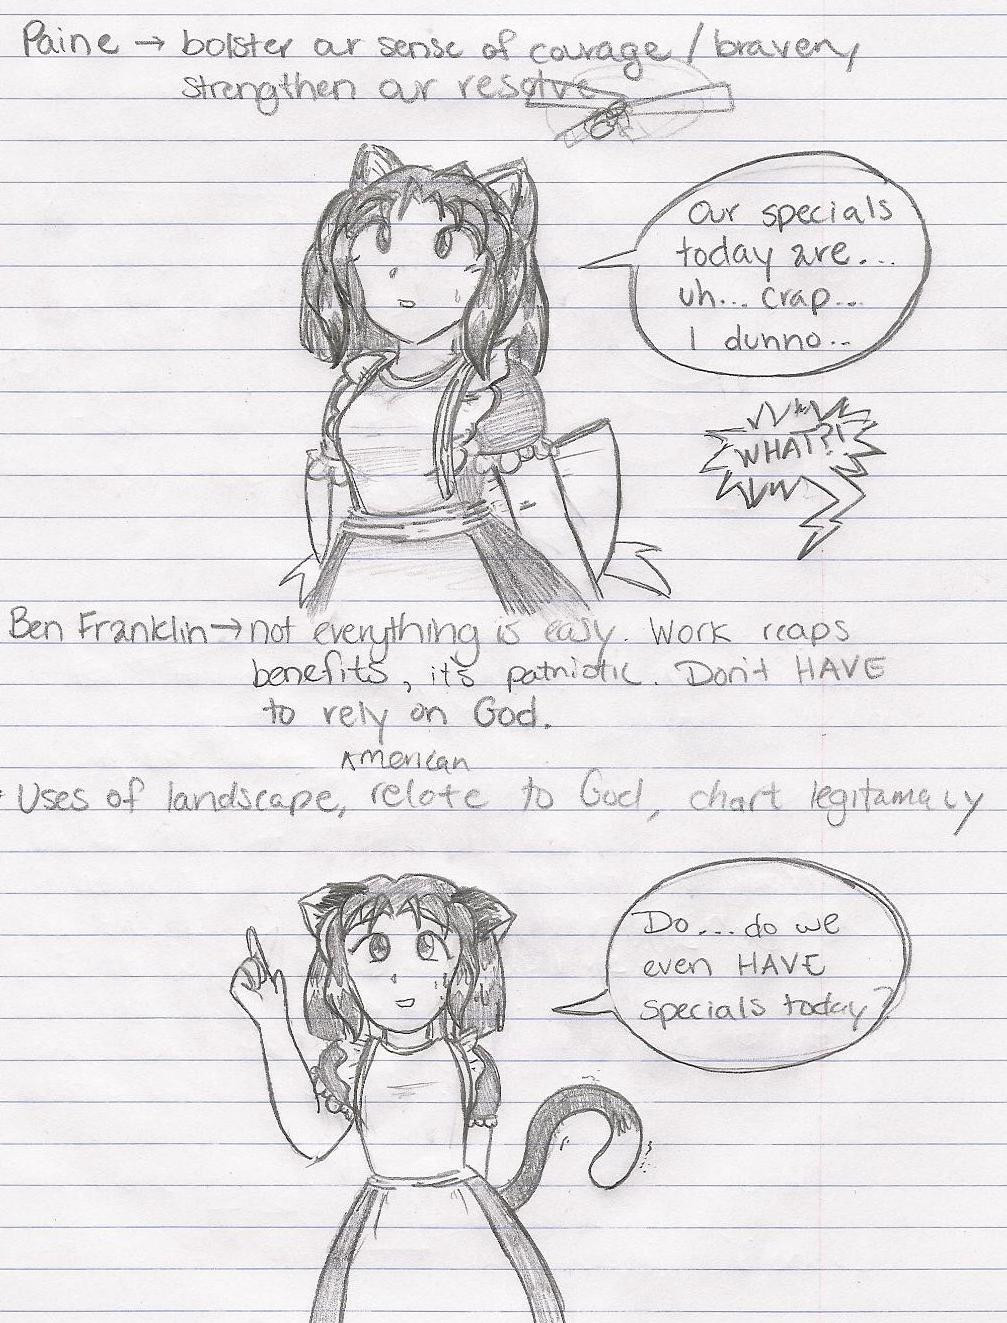 Paine → bolster our sense of courage / bravery,
strengthen our resolve
Our specials
today are...
uh... crap...
I dunno..
WHAT?!
Ben Franklin → not everything is easy. Work reaps
benefits, it's patriotic. Don't HAVE
to rely on God.
American
Uses of landscape, relate to God, chart legitamacy
Do... do we
even HAVE
specials today?